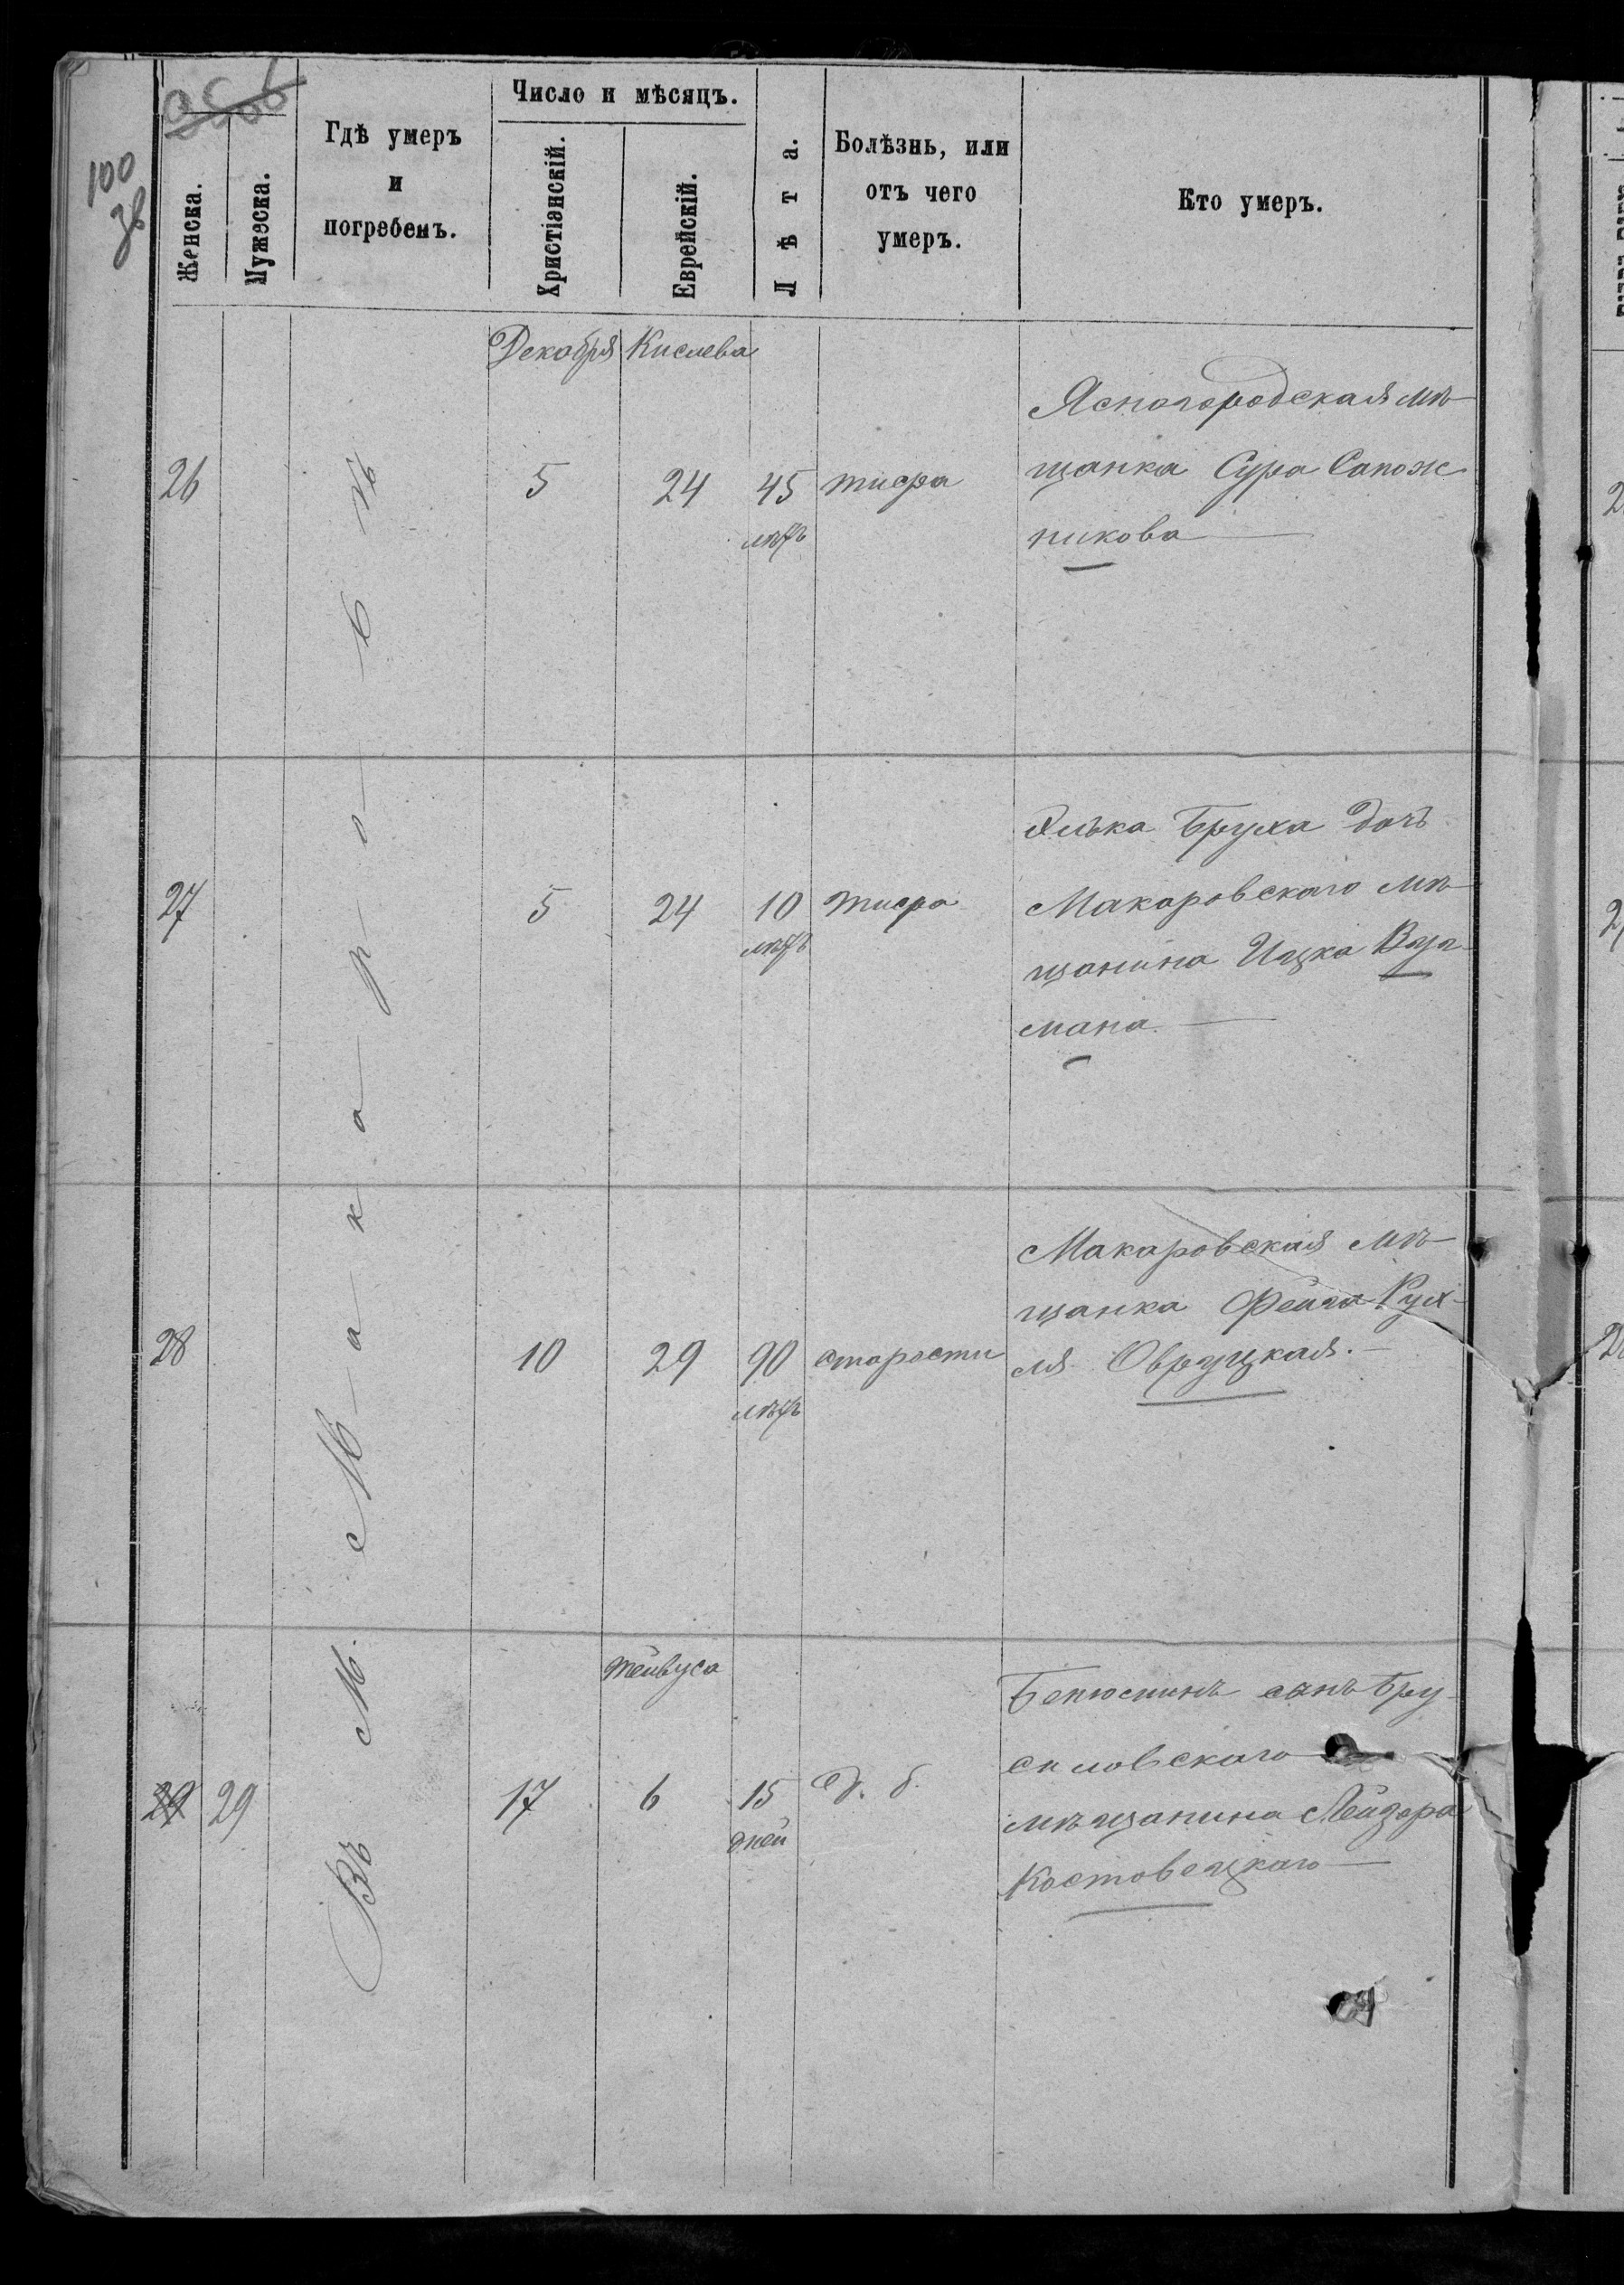 100
зв
Женска.
Мужеска.
Гдѣ умеръ
и
погребенъ.
Число и мѣсяцъ.
Христіанскій.
Еврейскій.
Лѣта.
Болѣзнь, или
отъ чего
умеръ.
Кто умеръ.
Въ М. Макаровѣ
Декабря Кислева
26 5 24 45 лѣтъ тифа
Ясногородская мѣ-
щанка Сура Сапож-
никова
27 5 24 10 лѣтъ тифа
Элька Бруха дочь
Макаровскаго мѣ-
щанина Ицка
мана.
28 10 29 90 лѣтъ старости
Макаровская мѣ-
щанка Фейга Рух-
ля Овруцкая.
Тейвуса
29 29 17 6 15 дней
Беньюминъ сынъ Бру-
силовскаго
мѣщанина Лейзера
Костовецкаго